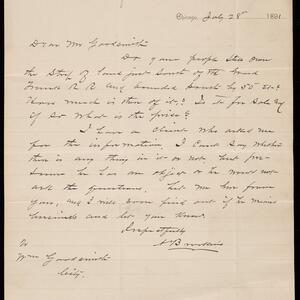 Chicago, July 28th 1891
Dear Mr Goodsmith
Do your people still own
the Strip of land just South of the Grand
Trunk R R and bounded South by 50 St &
How much is there of it? Is it for Sale &
if so What is the price?
I have a Client who asked me
for this information, I Cant Say whether
there is any thing in it or not, but pre-
sume he has an object or he would not
ask the questions. Let me hear from
you, and I will soon find out if he means
business and let you know.
Respectfully
To
Wm Goodsmith
City.